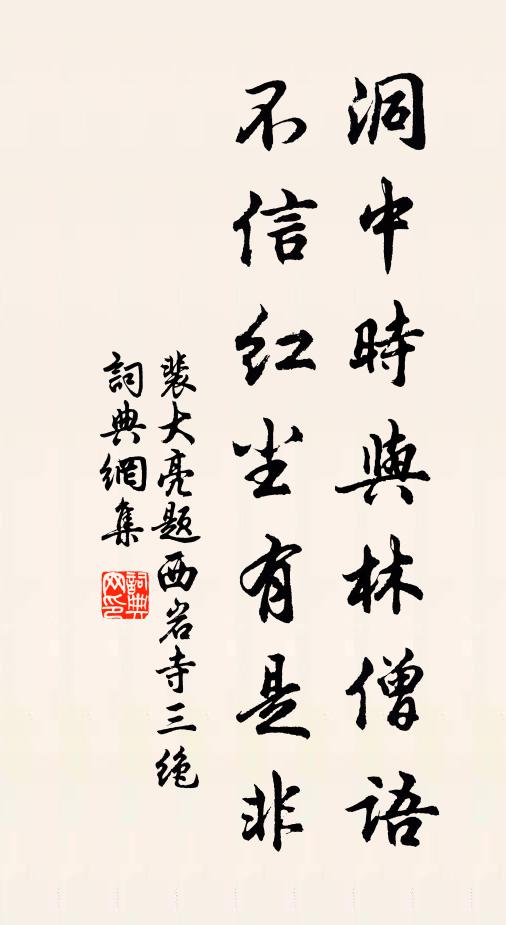 洞中時與林僧語
不信紅尘有是非
裴大亮题西岩寺三绝
詞典網集
詞典网印